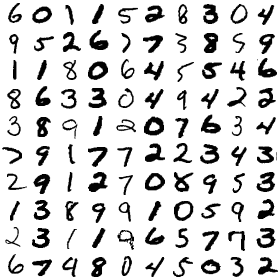 6 0 1 1 5 2 8 3 0 4
9 5 2 6 7 7 3 8 5 9
1 1 8 0 6 4 5 5 4 6
8 6 3 3 0 4 9 4 2 2
3 8 9 1 2 0 7 6 3 4
7 9 1 7 7 2 2 3 4 3
2 9 1 2 7 0 8 9 5 3
1 3 8 9 9 1 0 5 9 2
2 3 1 1 9 6 5 7 7 3
6 8 7 4 8 4 5 0 3 2